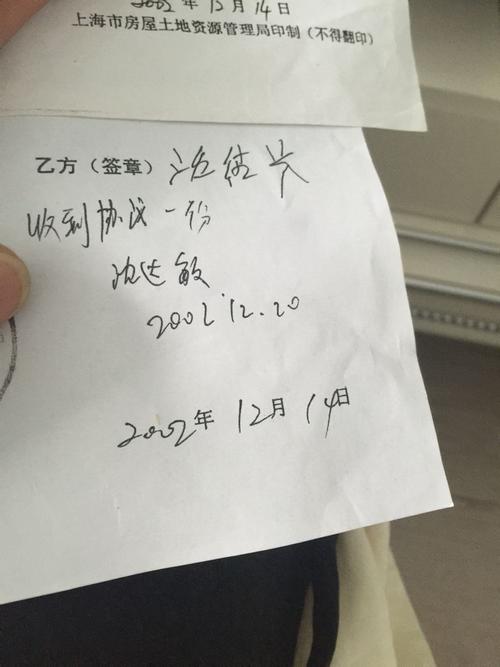 2002年12月14日
上海市房屋土地资源管理局印制(不得翻印)
乙方(签章)
收到协议一份
沈达敏
2002.12.20
2002年 12月 14日